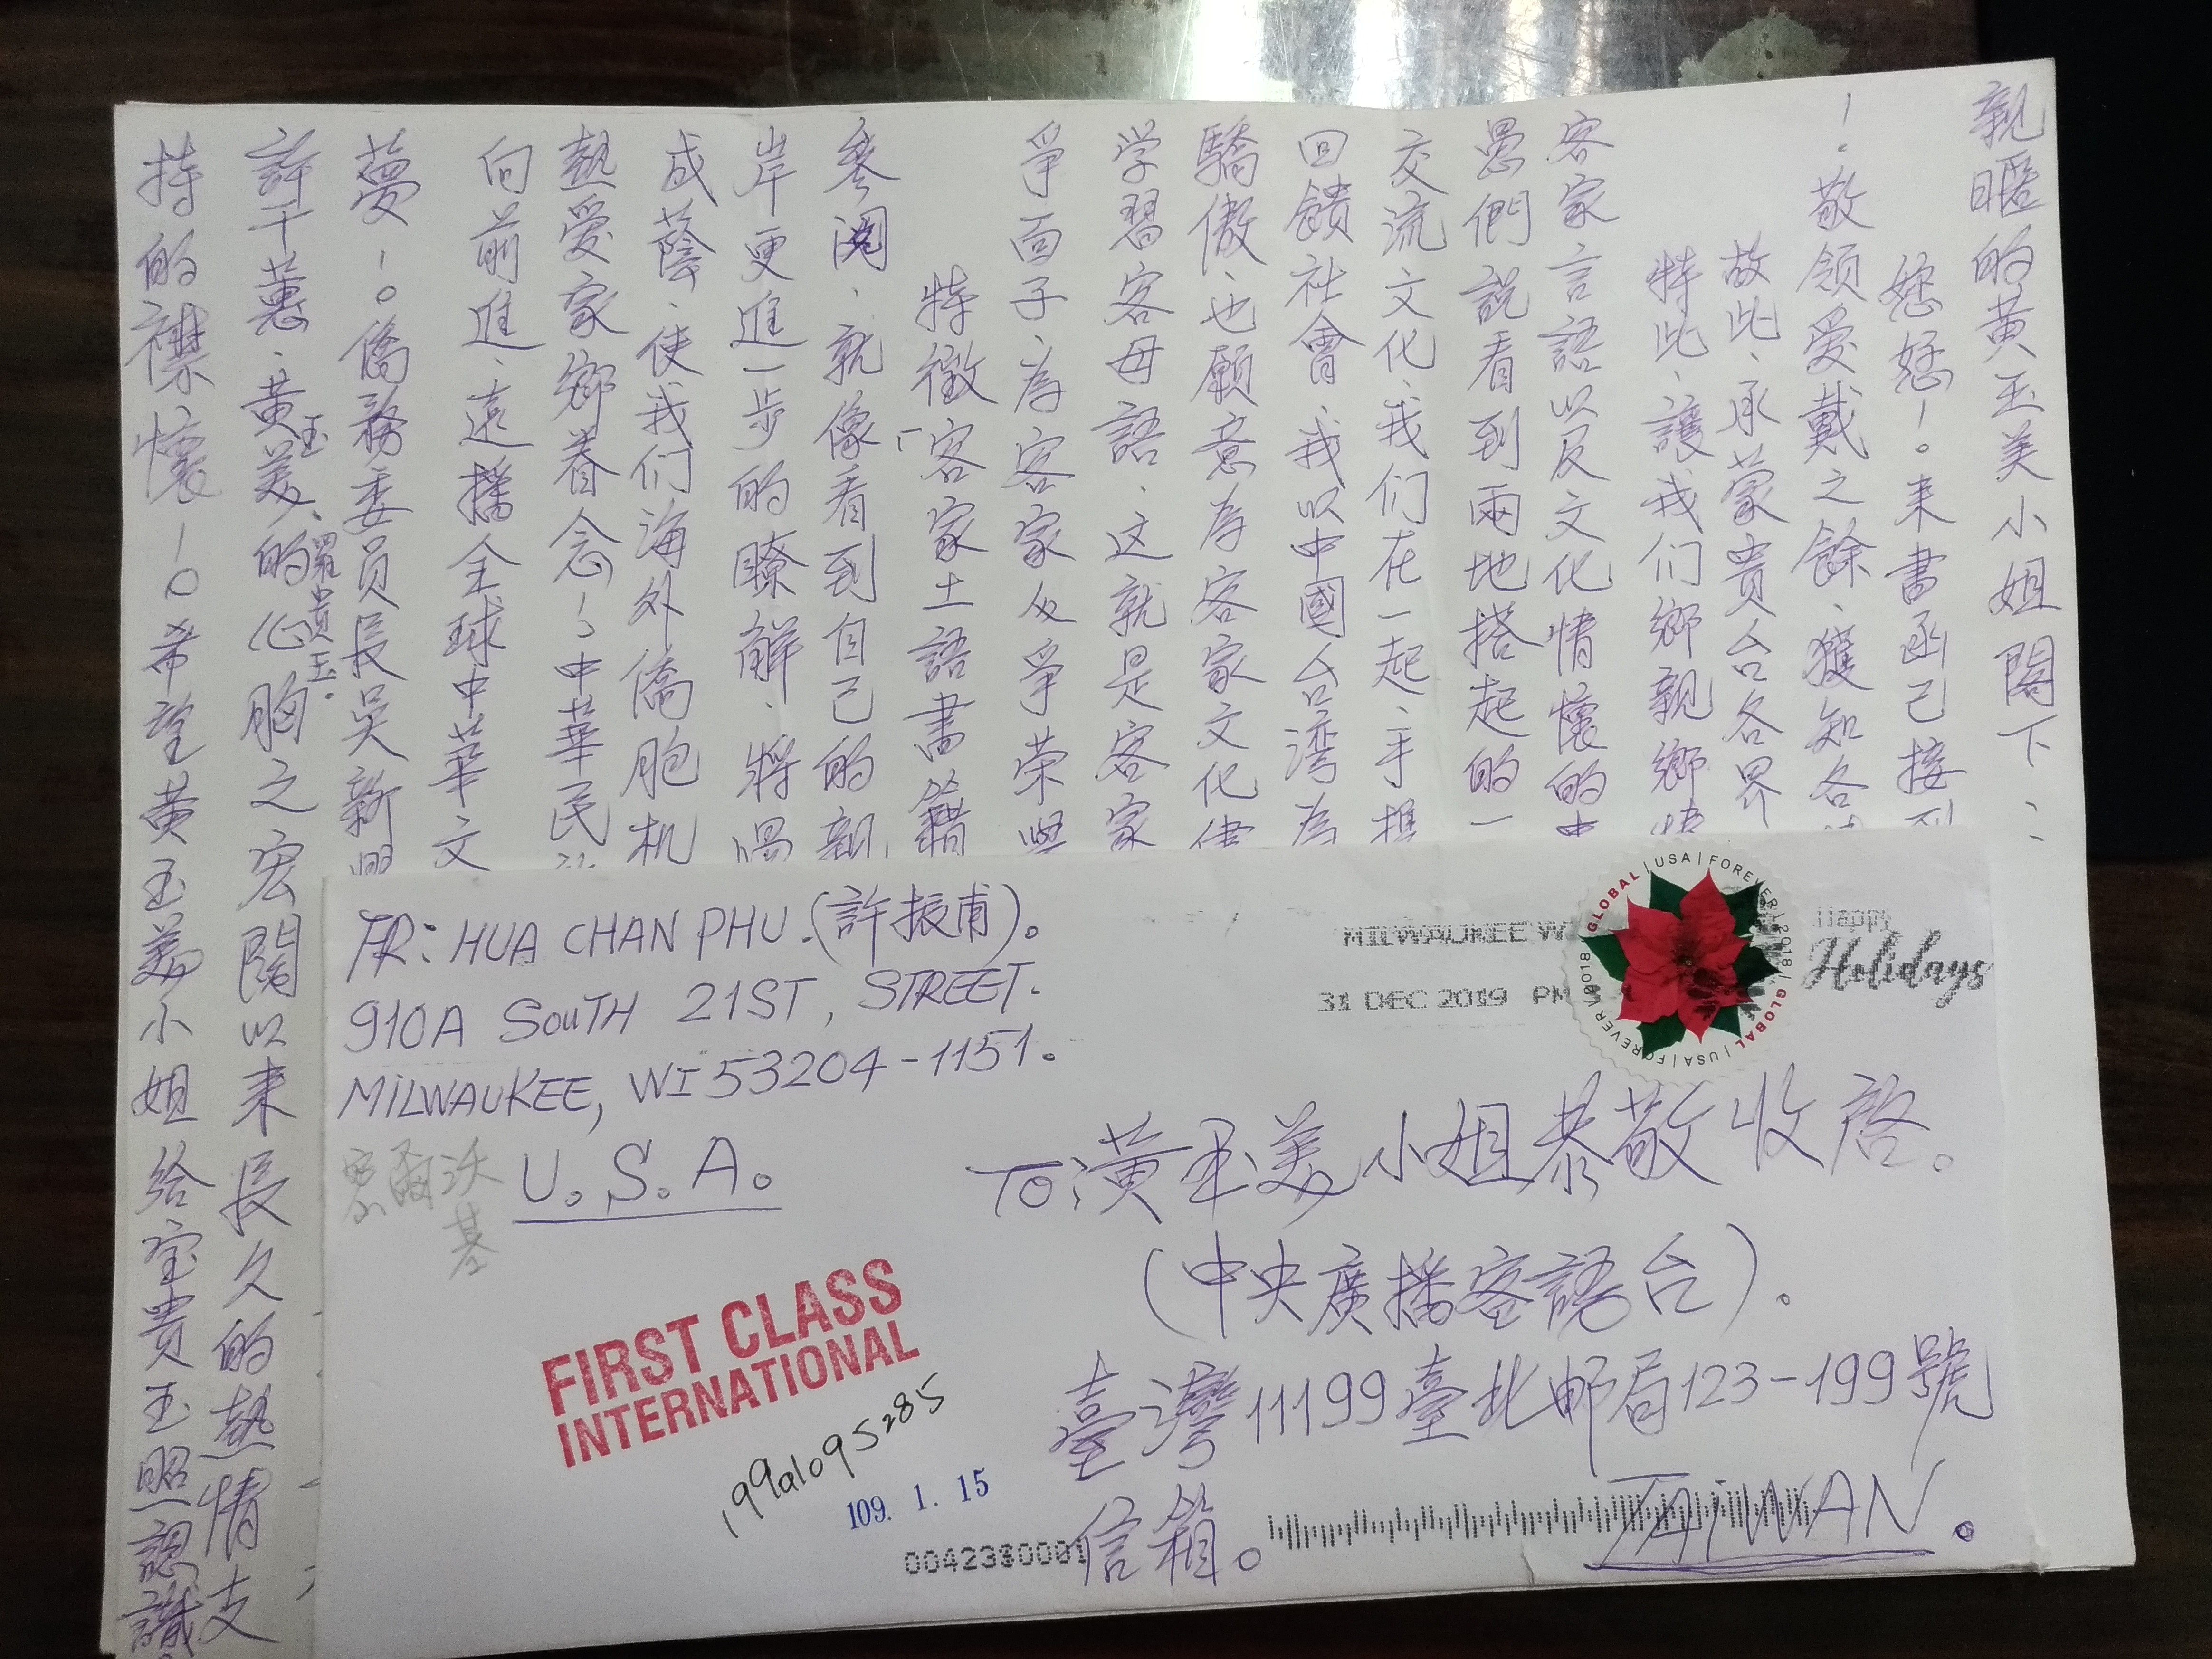 親暱的黃玉美小姐閣下：
您好！。来書函己接到
！敬領受戴之餘、獲知各
敬此、承蒙贵台各界
特此、讓我们鄉親鄉情
客家言語以及文化情懷的中
們說看到兩地搭起的一
交流文化、我们在一起、手携
回饋社會、我以中國台湾為
驕傲、也願意为客家文化
学習客母語、这就是客家
爭面子、为客家人爭荣與
特徵「客家土語書籍
參阅、就像看到自己的親
岸更進一步的瞭解、將
成蔭、使我们海外僑胞机
熱愛家鄉眷念！」中華民
向前進、遠播全球中華文
夢！。僑務委员長吳新興
許千蕙、黄玉美、羅貴玉.的心胸之宏闊以来長久的熱情支
持的襟懷！。希望黄玉美小姐给宝贵玉照認識
FR: HUA CHAN PHU. (許振甫)。
910A SOUTH 21ST, STREET.
MILWAUKEE, WI 53204-1151。
U.S.A.
密爾沃基
MILWAUKEE W
31 DEC 2019 PM
GLOBAL | USA | FOREVER | 2018 | GLOBAL | USA | FOREVER | 2018
Happy
Holidays
To: 黃玉美小姐恭敬收啓。
(中央廣播客語台)。
臺灣11199臺北邮局123-199號
信箱。
TAIWAN。
FIRST CLASS
INTERNATIONAL
199a1095285
109. 1. 15